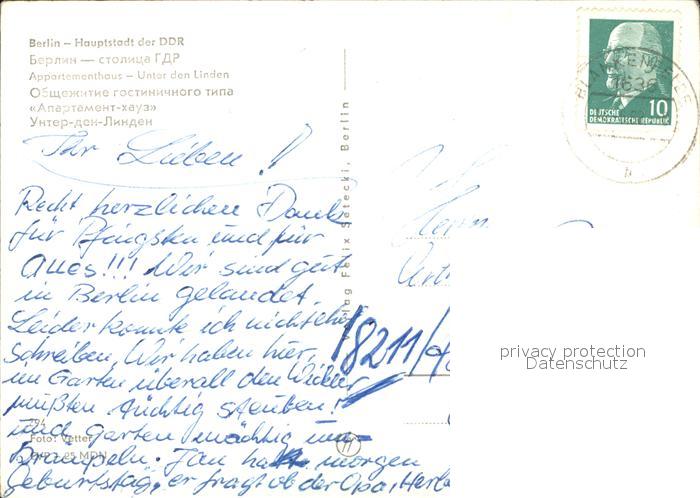 Berlin – Hauptstadt der DDR
Берлин — столица ГДР
Appartementhaus – Unter den Linden
Общежитие гостиничного типа
«Апартамент-хауз»
Унтер-ден-Линден
Ihr Lieben!
Recht herzlichen Dank
für Pfingsten und für
alles!!! Wir sind gut
in Berlin gelandet.
Leider konnte ich nicht eher
schreiben. Wir haben hier
im Garten überall den
müßten tüchtig
und Garten mächtig
Jan hat morgen
Geburtstag, er fragt ob der Opa, Herb
Verlag Felix Setecki, Berlin
294
Foto: Vetter
25 MDN
Herrn
18211/
BLANKENFELDE
1636
b
10
DEUTSCHE
DEMOKRATISCHE REPUBLIK
privacy protection
Datenschutz